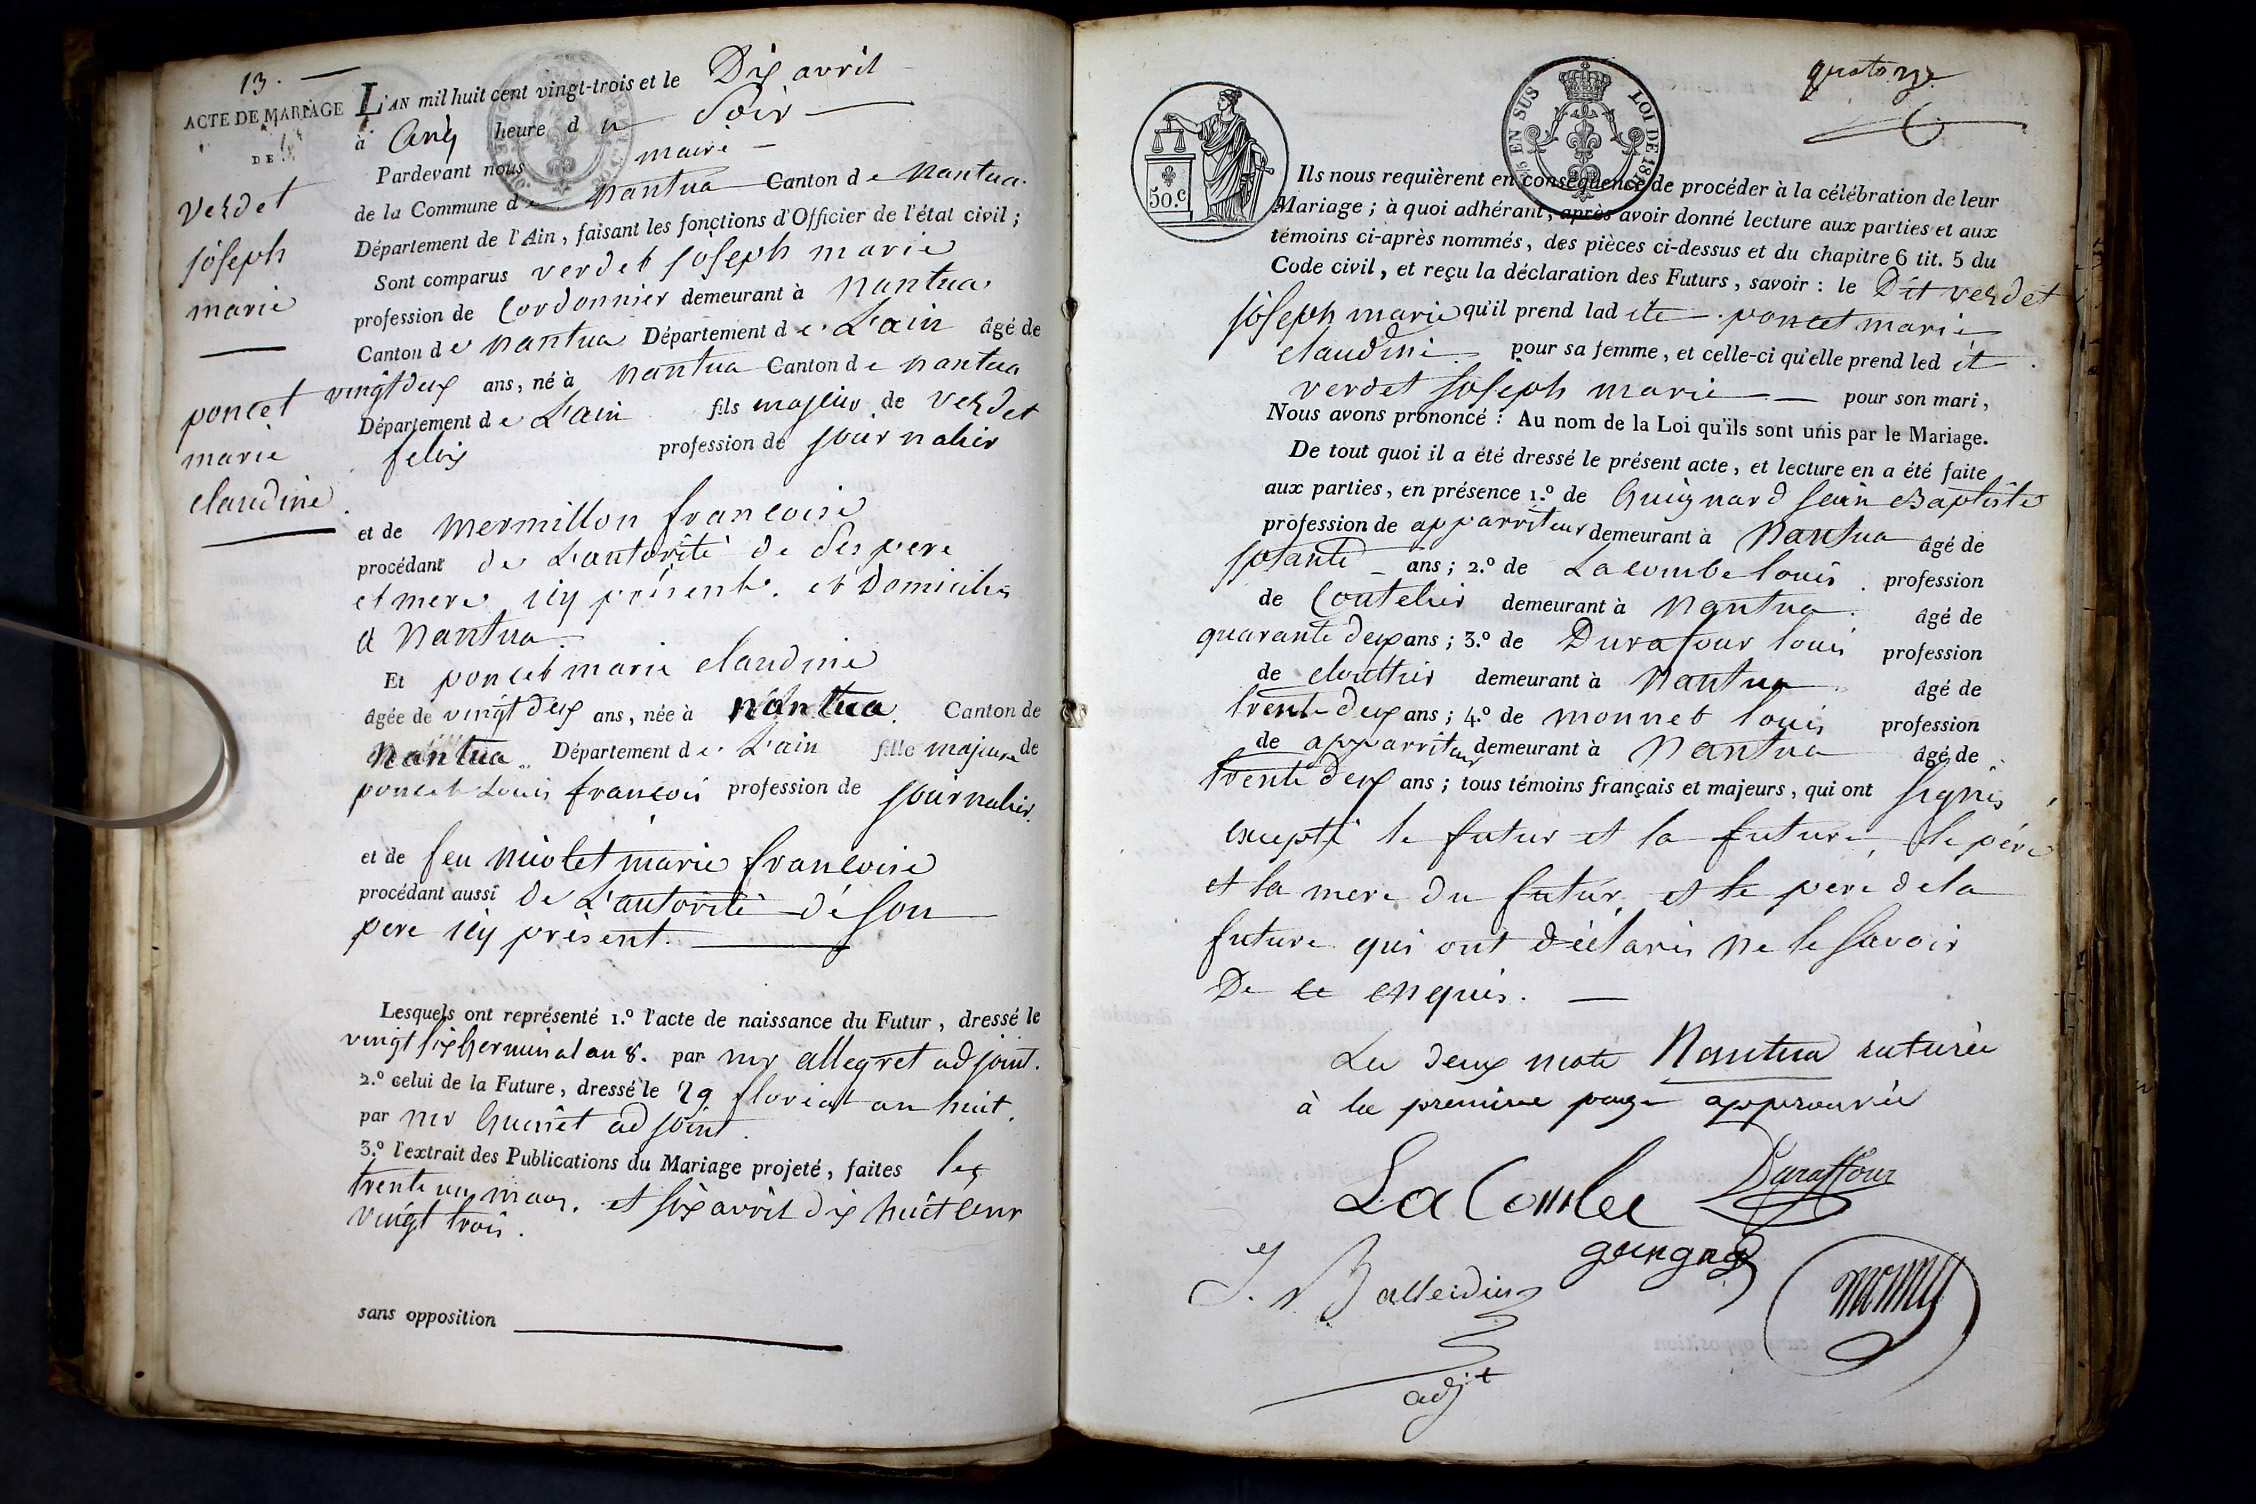 13. —
ACTE DE MARIAGE
DE
verdet
joseph
marie
poncet
marie
claudine
L'AN mil huit cent vingt-trois et le Dix avril
à Cinq heure du Soir
Pardevant nous maire
de la Commune de nantua Canton de nantua.
Département de l'Ain, faisant les fonctions d'Officier de l'état civil ;
Sont comparus verdet joseph marie
profession de Cordonnier demeurant à nantua
Canton de nantua Département de L'ain âgé de
vingt deux ans, né à nantua Canton de nantua
Département de L'ain fils majeur de verdet
felix profession de journalier
et de mermillon francoise
procédant de L'autorité de Ses pere
et mere icy présents. et Domiciliés
a nantua.
Et poncet marie claudine
âgée de vingt deux ans, née à nantua. Canton de
nantua Département de L'ain fille majeure de
poncet Louis françois profession de journalier.
et de feu niolet marie francoise
procédant aussi de L'autorité de Son
pere icy présent.
Lesquels ont représenté 1.º l'acte de naissance du Futur, dressé le
vingt six Germinal an 8. par mr allegret adjoint.
2.º celui de la Future, dressé le 29 floréal an huit.
par mr Guerret adjoint.
3.º l'extrait des Publications du Mariage projeté, faites les
trente un mars. et six avril dix huit cent
vingt trois.
sans opposition
quatorze
50.C
EN SUS
LOI DE 1816
Ils nous requièrent en conséquence de procéder à la célébration de leur
Mariage ; à quoi adhérant, après avoir donné lecture aux parties et aux
témoins ci-après nommés, des pièces ci-dessus et du chapitre 6 tit. 5 du
Code civil, et reçu la déclaration des Futurs, savoir : le Dit verdet
joseph marie qu'il prend lad ite poncet marie
claudine pour sa femme, et celle-ci qu'elle prend led it
verdet joseph marie — pour son mari,
Nous avons prononcé : Au nom de la Loi qu'ils sont unis par le Mariage.
De tout quoi il a été dressé le présent acte, et lecture en a été faite
aux parties, en présence 1.º de Guignard jean Baptiste
profession de apparriteur demeurant à Nantua âgé de
soixante ans ; 2.º de Lacombe louis profession
de Coutelier demeurant à Nantua. âgé de
quarante deux ans ; 3.º de Durafour louis profession
de cloutier demeurant à Nantua âgé de
trente deux ans ; 4.º de monnet louis profession
de apparriteur demeurant à Nantua âgé de
trente deux ans ; tous témoins français et majeurs, qui ont signés
excepté le futur et la future, le père
et la mere du futur et le pere de la
future qui ont déclarés ne le Savoir
De ce enquis. —
Les deux mots Nantua raturés
à la premiere page approuvés
LaCombe Duraffour
guingnard
J. Balleidier
adjt
monnet